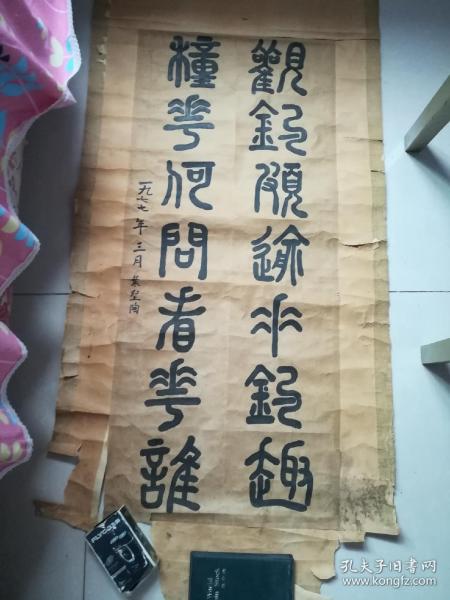 觀釣頗逾垂釣趣
種花何問看花誰
一九七七年三月 葉圣陶
孔夫子旧书网
www.kongfz.com